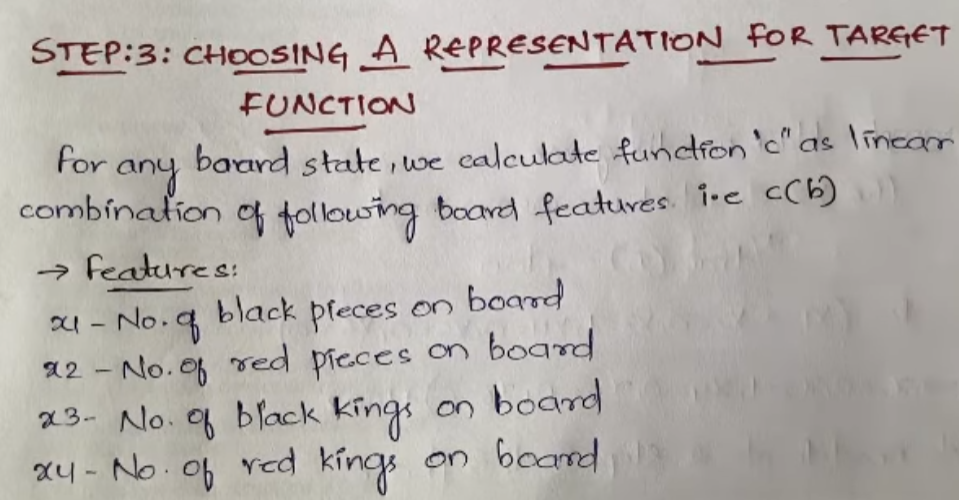 STEP:3: CHOOSING A REPRESENTATION FOR TARGET
FUNCTION
For any board state, we calculate function 'c" as linear
combination of following board features. i.e c(b)
→ Features:
x1 - No. of black pieces on board
x2 - No. of red pieces on board
x3 - No. of black kings on board
x4 - No. of red kings on board